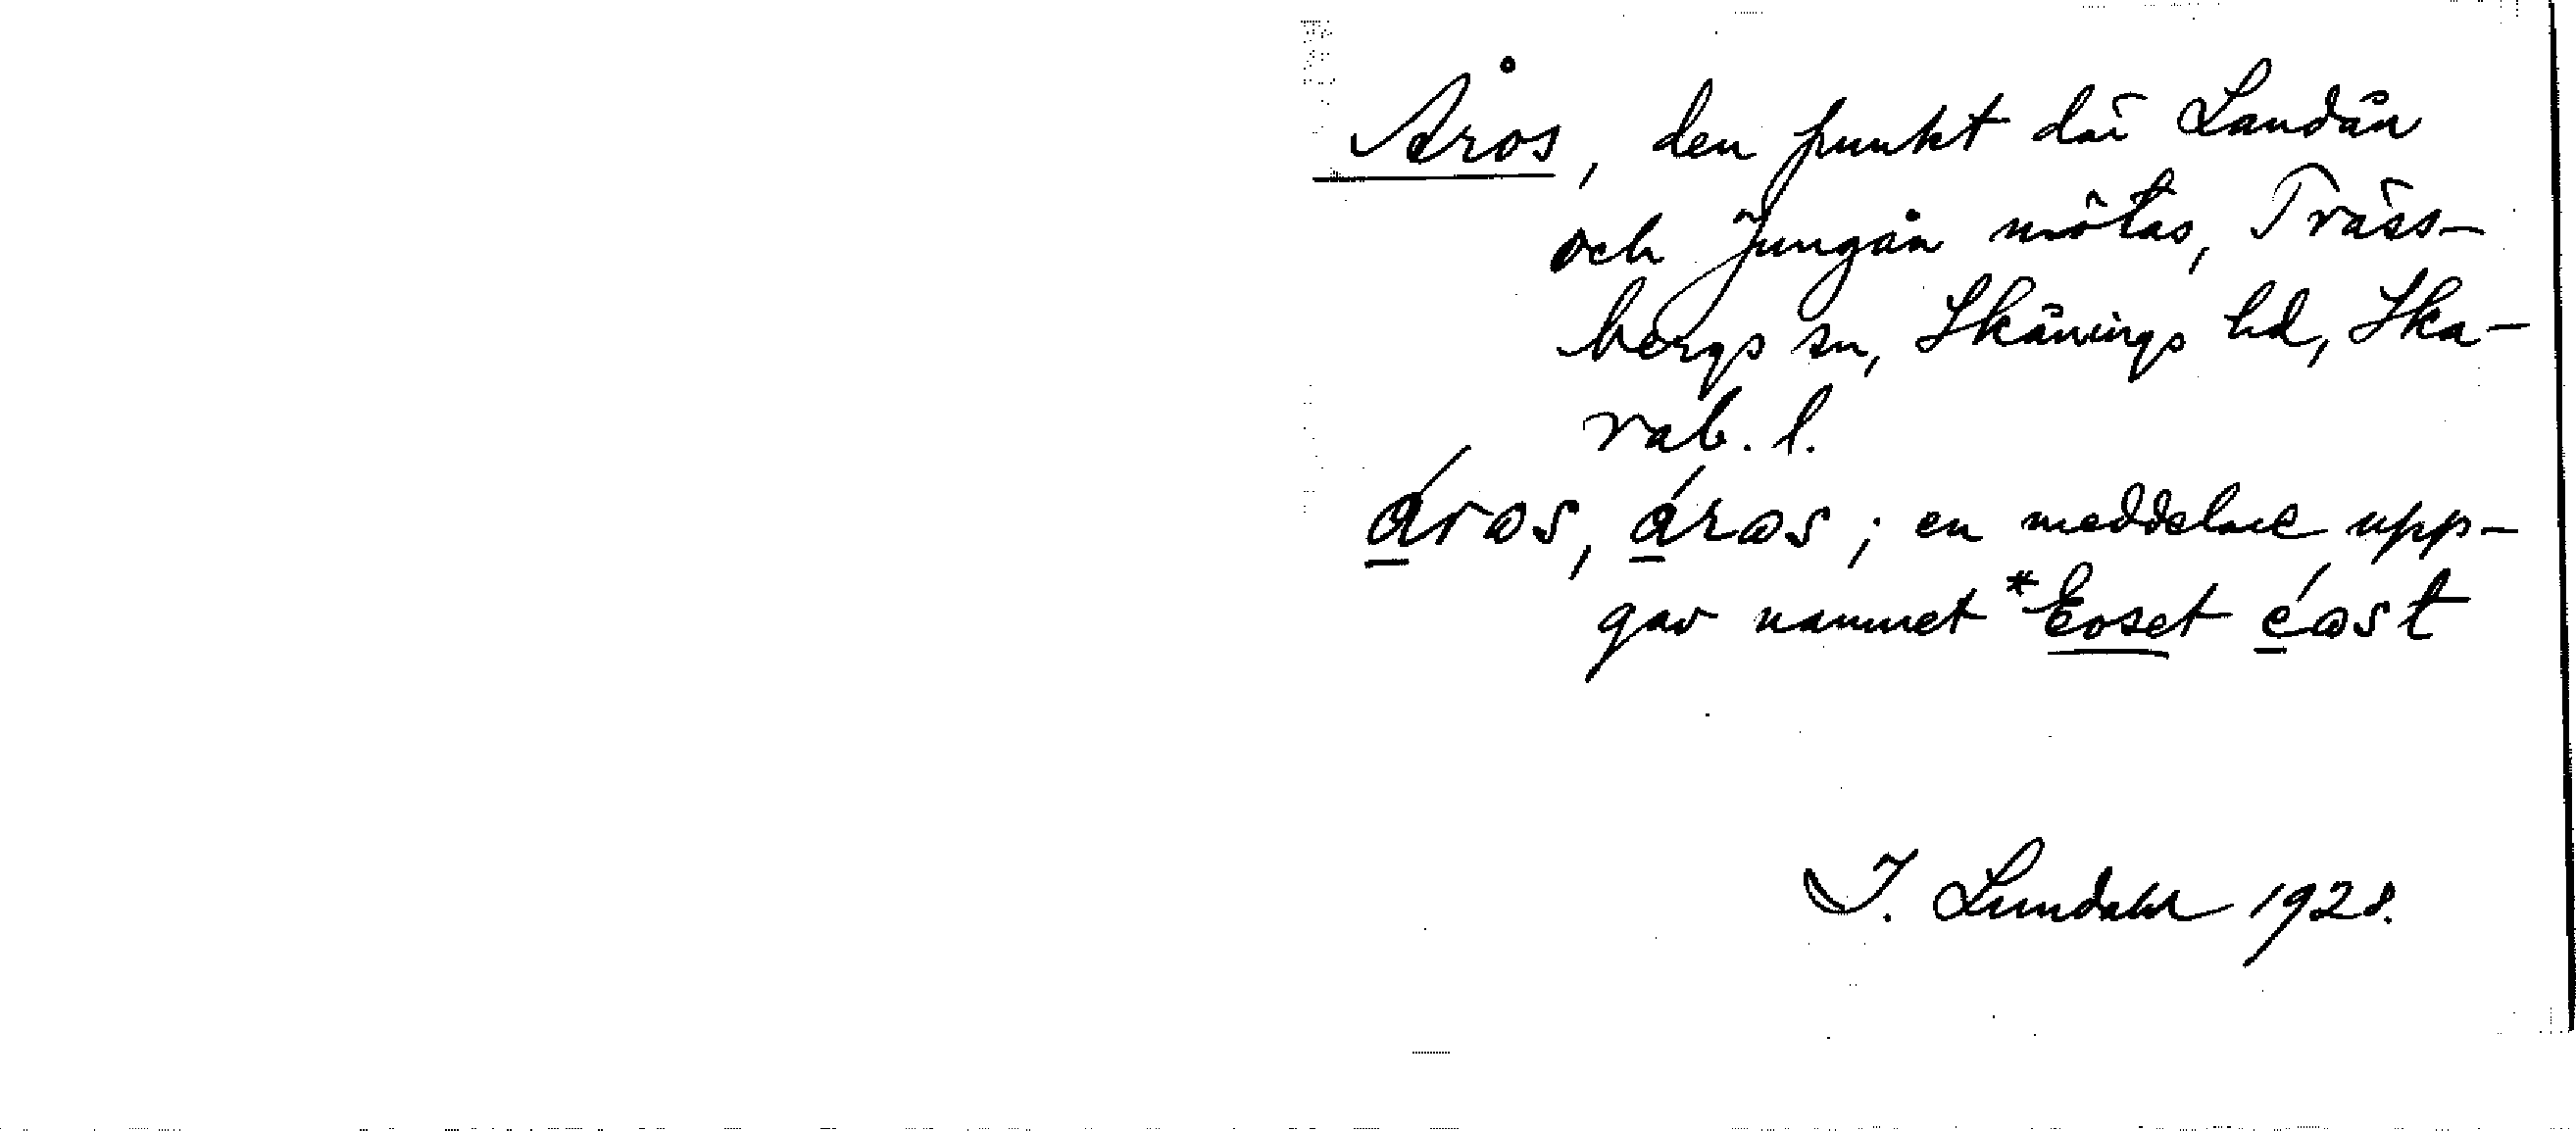 Åros, den punkt där Landån
och Jungån mötas, Träss-
bergs sn, Skånings hd, Ska-
rab. l.
áros, áros; en meddelare upp-
gav namnet *Eoset éost
J. Lundahl 1928.